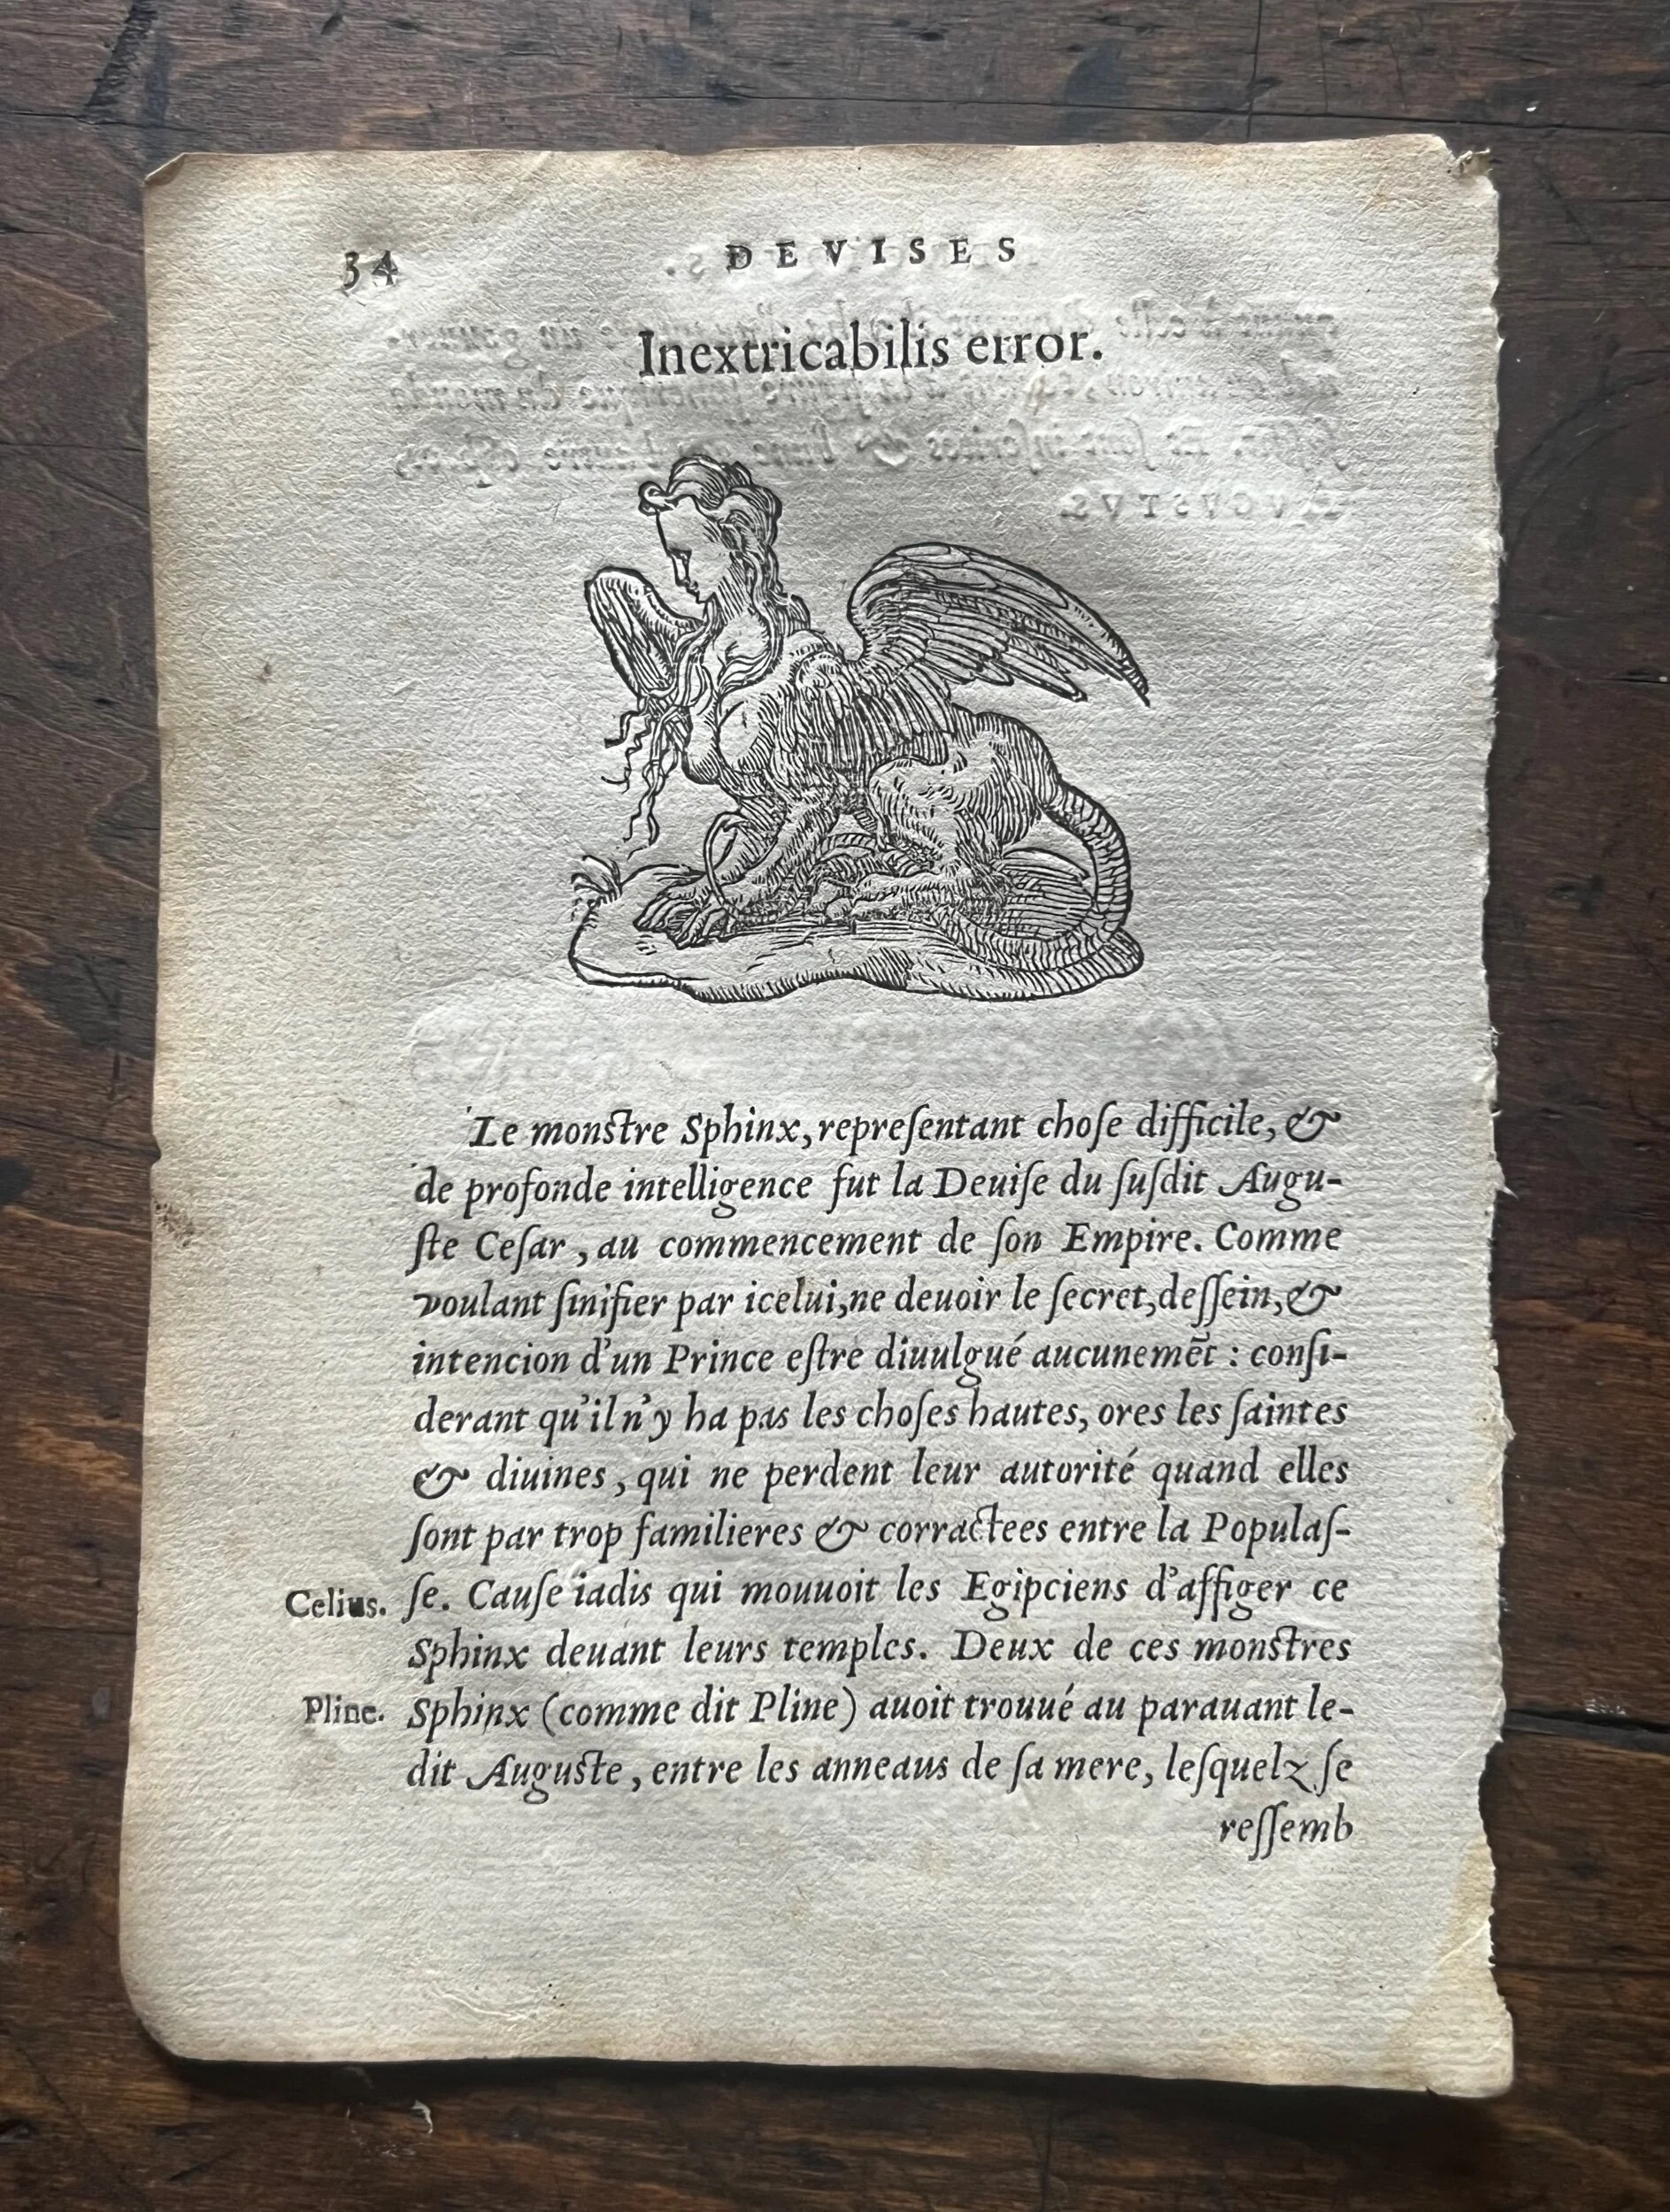 34 DEVISES
Inextricabilis error.
Le monstre Sphinx, repreſentant choſe difficile, &
de profonde intelligence fut la Deuiſe du ſuſdit Augu-
ſte Ceſar, au commencement de ſon Empire. Comme
voulant ſinifier par icelui, ne deuoir le ſecret, deſſein, &
intencion d'un Prince eſtre diuulgué aucunemẽt : conſi-
derant qu'il n'y ha pas les choſes hautes, ores les ſaintes
& diuines, qui ne perdent leur autorité quand elles
ſont par trop familieres & corractees entre la Populaſ-
Celius. ſe. Cauſe iadis qui mouuoit les Egipciens d'affiger ce
Sphinx deuant leurs temples. Deux de ces monstres
Pline. Sphinx (comme dit Pline) auoit trouué au parauant le-
dit Auguste, entre les anneaus de ſa mere, leſquelz ſe
reſſemb